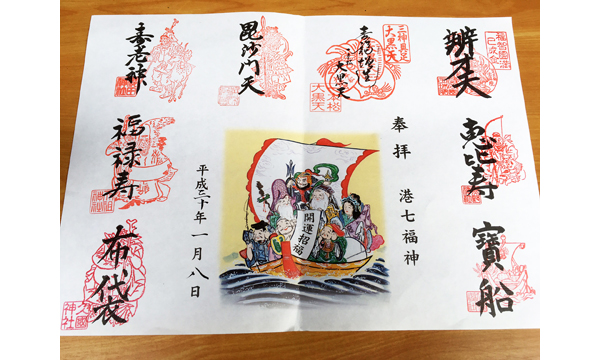 辨才天
恵比寿
寶船
三神具足
大黒天
大黒天
奉拝
港七福神
開運招福
毘沙門天
平成三十年一月八日
壽老神
福禄寿
布袋
久國
神社